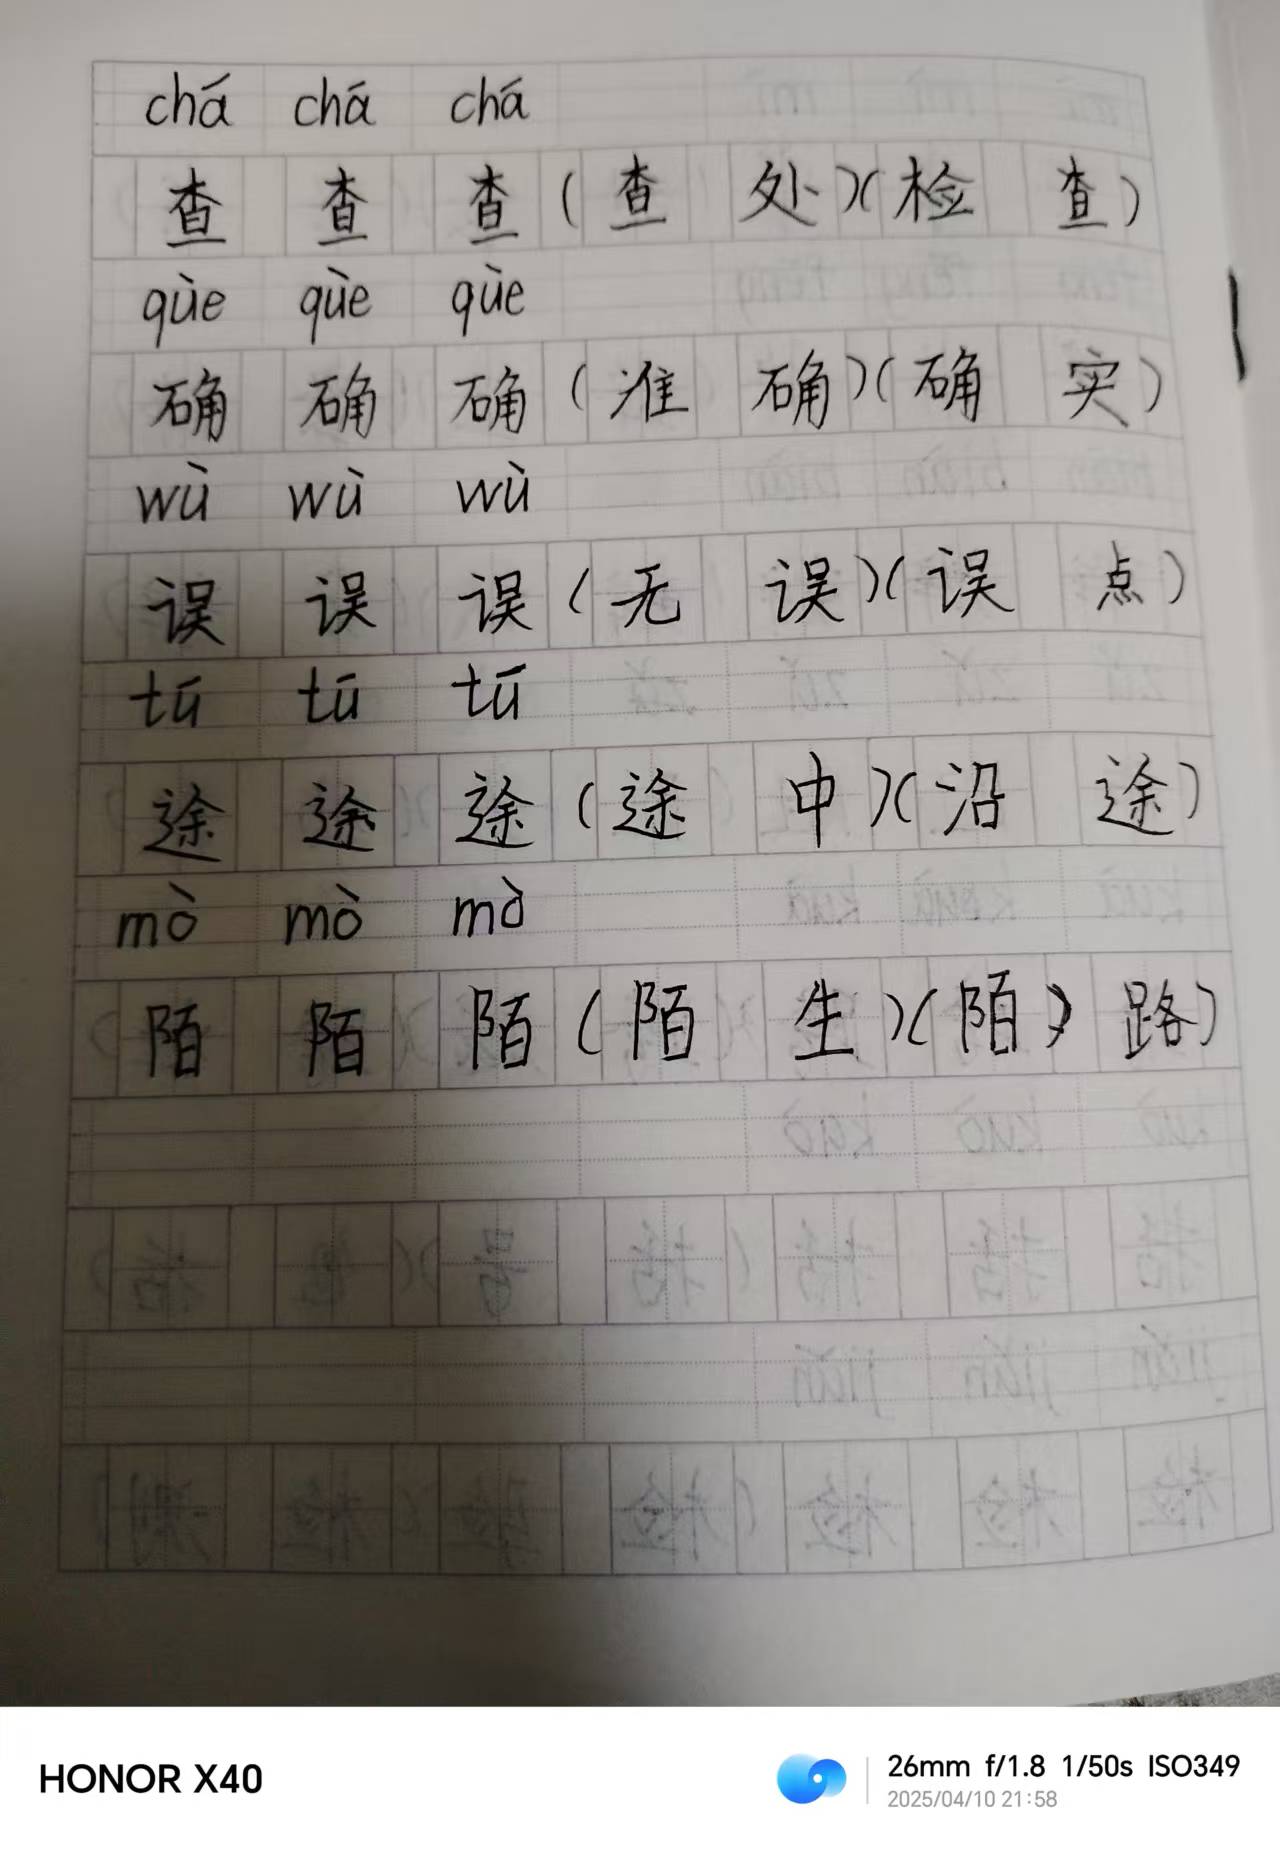 chá chá chá
查 查 查 (查 处)(检 查)
qùe qùe qùe
确 确 确 (准 确)(确 实)
wù wù wù
误 误 误 (无 误)(误 点)
tú tú tú
途 途 途 (途 中)(沿 途)
mò mò mò
陌 陌 陌 (陌 生)(陌 路)
HONOR X40
26mm f/1.8 1/50s ISO349
2025/04/10 21:58